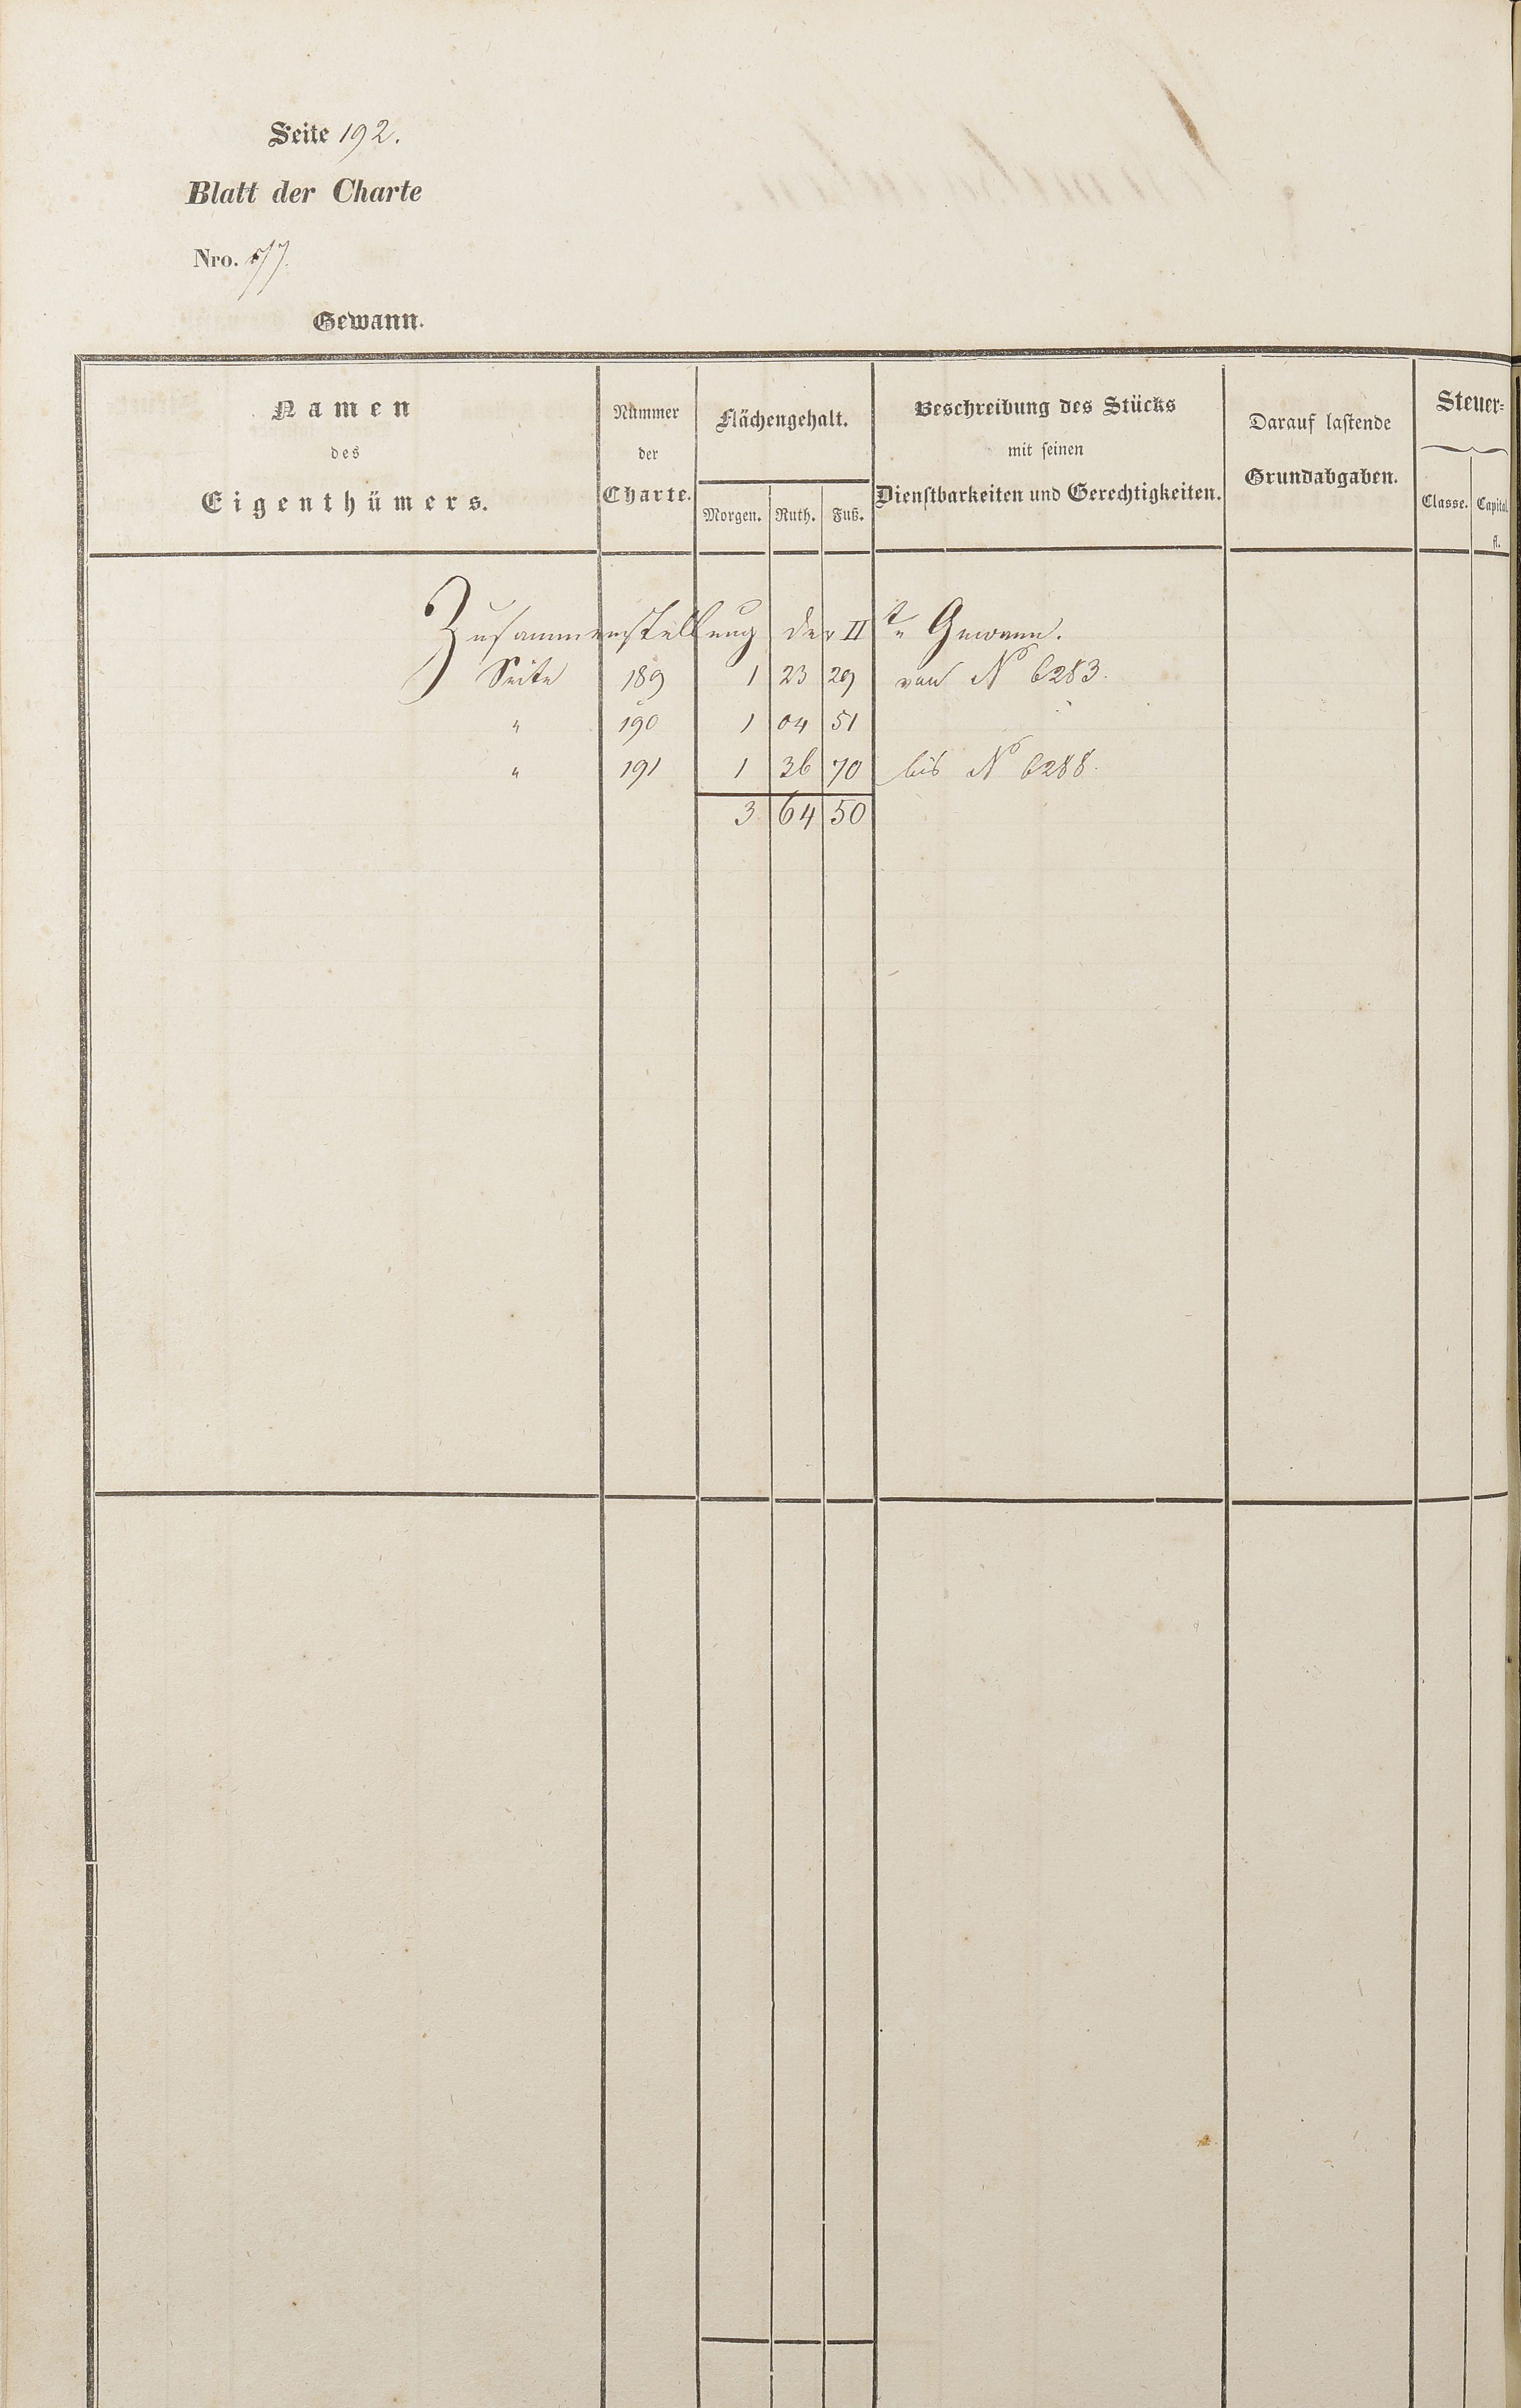 Seite 192.
Blatt der Charte
Nro. 57.
Gewann.
Namen des Eigenthümers.
Nummer der Charte.
Flächengehalt.
Morgen. Ruth. Fuß.
Beschreibung des Stücks mit seinen Dienstbarkeiten und Gerechtigkeiten.
Darauf lastende Grundabgaben.
Steuer-
Classe. Capital. fl.
Zusammenstellung der II te Gewann.
Seite 189 1 23 29 von No 6283.
" 190 1 04 51
" 191 1 36 70 bis No 6288.
3 64 50